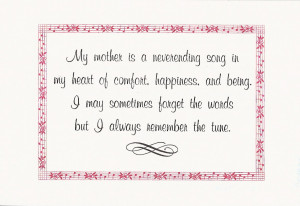 My mother is a neverending song in
my heart of comfort, happiness, and being.
I may sometimes forget the words
but I always remember the tune.